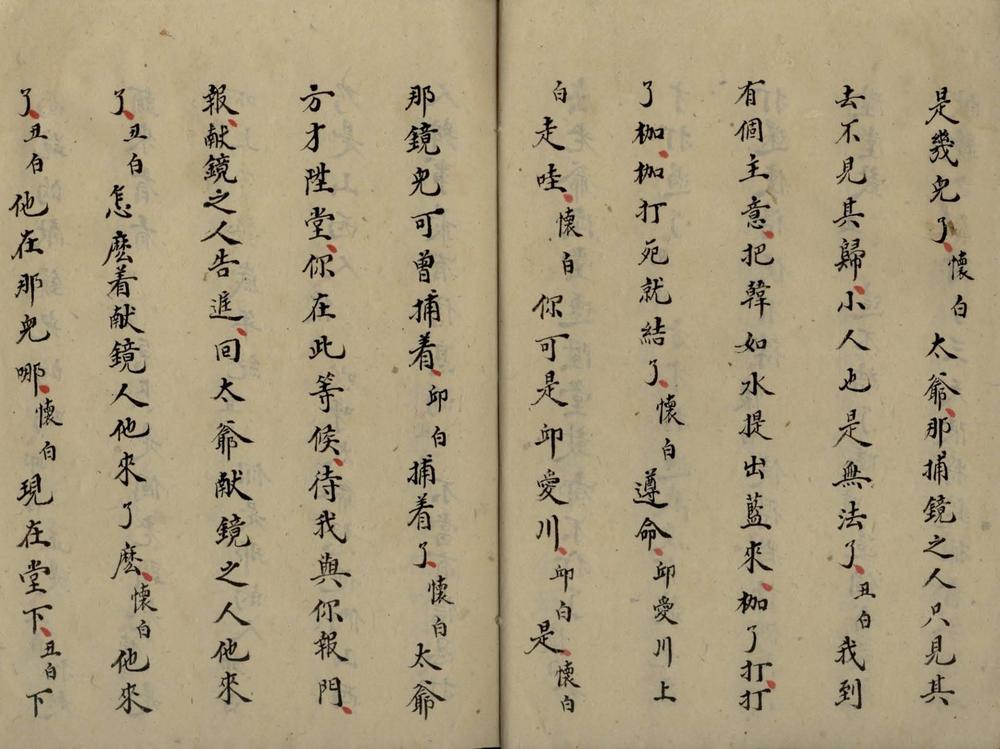 是幾兒了、懷白太爺、那捕鏡之人只見其
去不見其歸、小人也是無法了、丑白我到
有個主意、把韓如水提出藍來、枷了打、打
了枷、枷打死就結了、懷白遵命、邱愛川上
白走哇、懷白你可是邱愛川、邱白是、懷白
那鏡兒可曾捕着、邱白捕着了、懷白太爺
方才陞堂、你在此等候、待我與你報門、
報、献鏡之人告進、回太爺献鏡之人他來
了、丑白怎麽着献鏡人他來了麽、懷白他來
了、丑白他在那兒哪、懷白現在堂下、丑白下